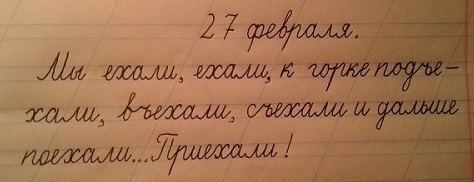 27 февраля.
Мы ехали, ехали, к горке подъе-
хали, въехали, съехали и дальше
поехали...Приехали!